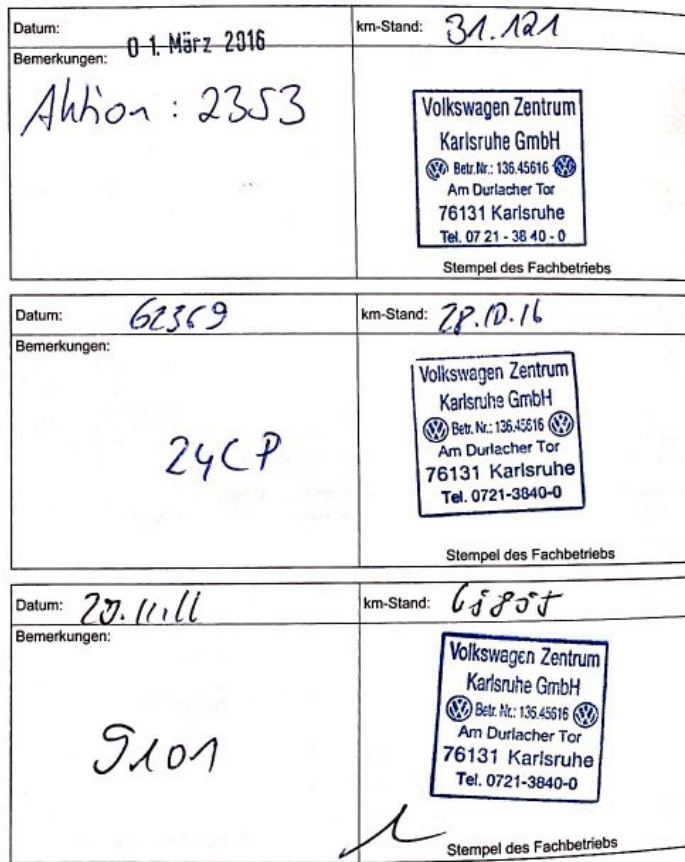 Datum: 01. März 2016 km-Stand: 31.121
Bemerkungen:
Aktion: 2353
Volkswagen Zentrum
Karlsruhe GmbH
Betr.Nr.: 136.45616
Am Durlacher Tor
76131 Karlsruhe
Tel. 07 21 - 38 40 - 0
Stempel des Fachbetriebs
Datum: 62369 km-Stand: 28.10.16
Bemerkungen:
24CP
Volkswagen Zentrum
Karlsruhe GmbH
Betr. Nr.: 136.45616
Am Durlacher Tor
76131 Karlsruhe
Tel. 0721-3840-0
Stempel des Fachbetriebs
Datum: km-Stand:
Bemerkungen:
9101
Volkswagen Zentrum
Karlsruhe GmbH
Betr. Nr.: 136.45616
Am Durlacher Tor
76131 Karlsruhe
Tel. 0721-3840-0
Stempel des Fachbetriebs